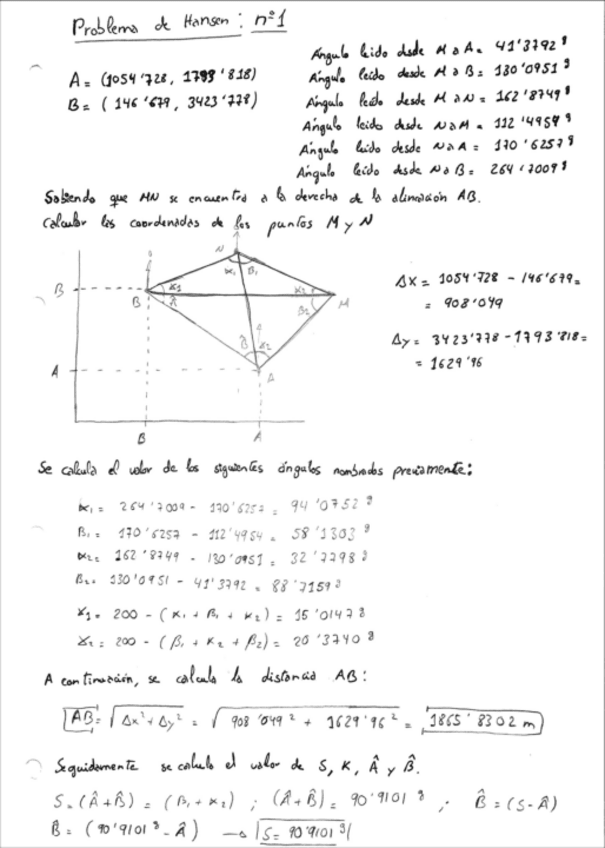 Problema de Hansen: nº1
A = (1054'728, 1793'818)
B = (146'679, 3423'778)
Ángulo leido desde M a A = 41'3792 g
Ángulo leido desde M a B = 130'0951 g
Ángulo leido desde M a N = 162'8749 g
Ángulo leido desde N a M = 112'4954 g
Ángulo leido desde N a A = 170'6257 g
Ángulo leido desde N a B = 264'7009 g
Sabiendo que MN se encuentra a la derecha de la alineación AB.
Calcular las coordenadas de los puntos M y N
N
α1 B1
B
B
γ1
Â
α2
M
β2
B̂
γ2
A
A
B
A
Δx = 1054'728 - 146'679 =
= 908'049
Δy = 3423'778 - 1793'818 =
= 1629'96
Se calcula el valor de los siguientes ángulos nombrados previamente:
α1 = 264'7009 - 170'6257 = 94'0752 g
β1 = 170'6257 - 112'4954 = 58'1303 g
α2 = 162'8749 - 130'0951 = 32'7798 g
β2 = 130'0951 - 41'3792 = 88'7159 g
γ1 = 200 - (α1 + β1 + α2) = 15'0147 g
γ2 = 200 - (β1 + α2 + β2) = 20'3740 g
A continuación, se calcula la distancia AB:
AB = √Δx² + Δy² = √908'049² + 1629'96² = 1865'8302 m
Seguidamente se calcula el valor de S, K, Â y B̂.
S = (Â+B̂) = (β1 + α2) ; (Â+B̂) = 90'9101 g ; B̂ = (S - Â)
B̂ = (90'9101 g - Â) → S = 90'9101 g